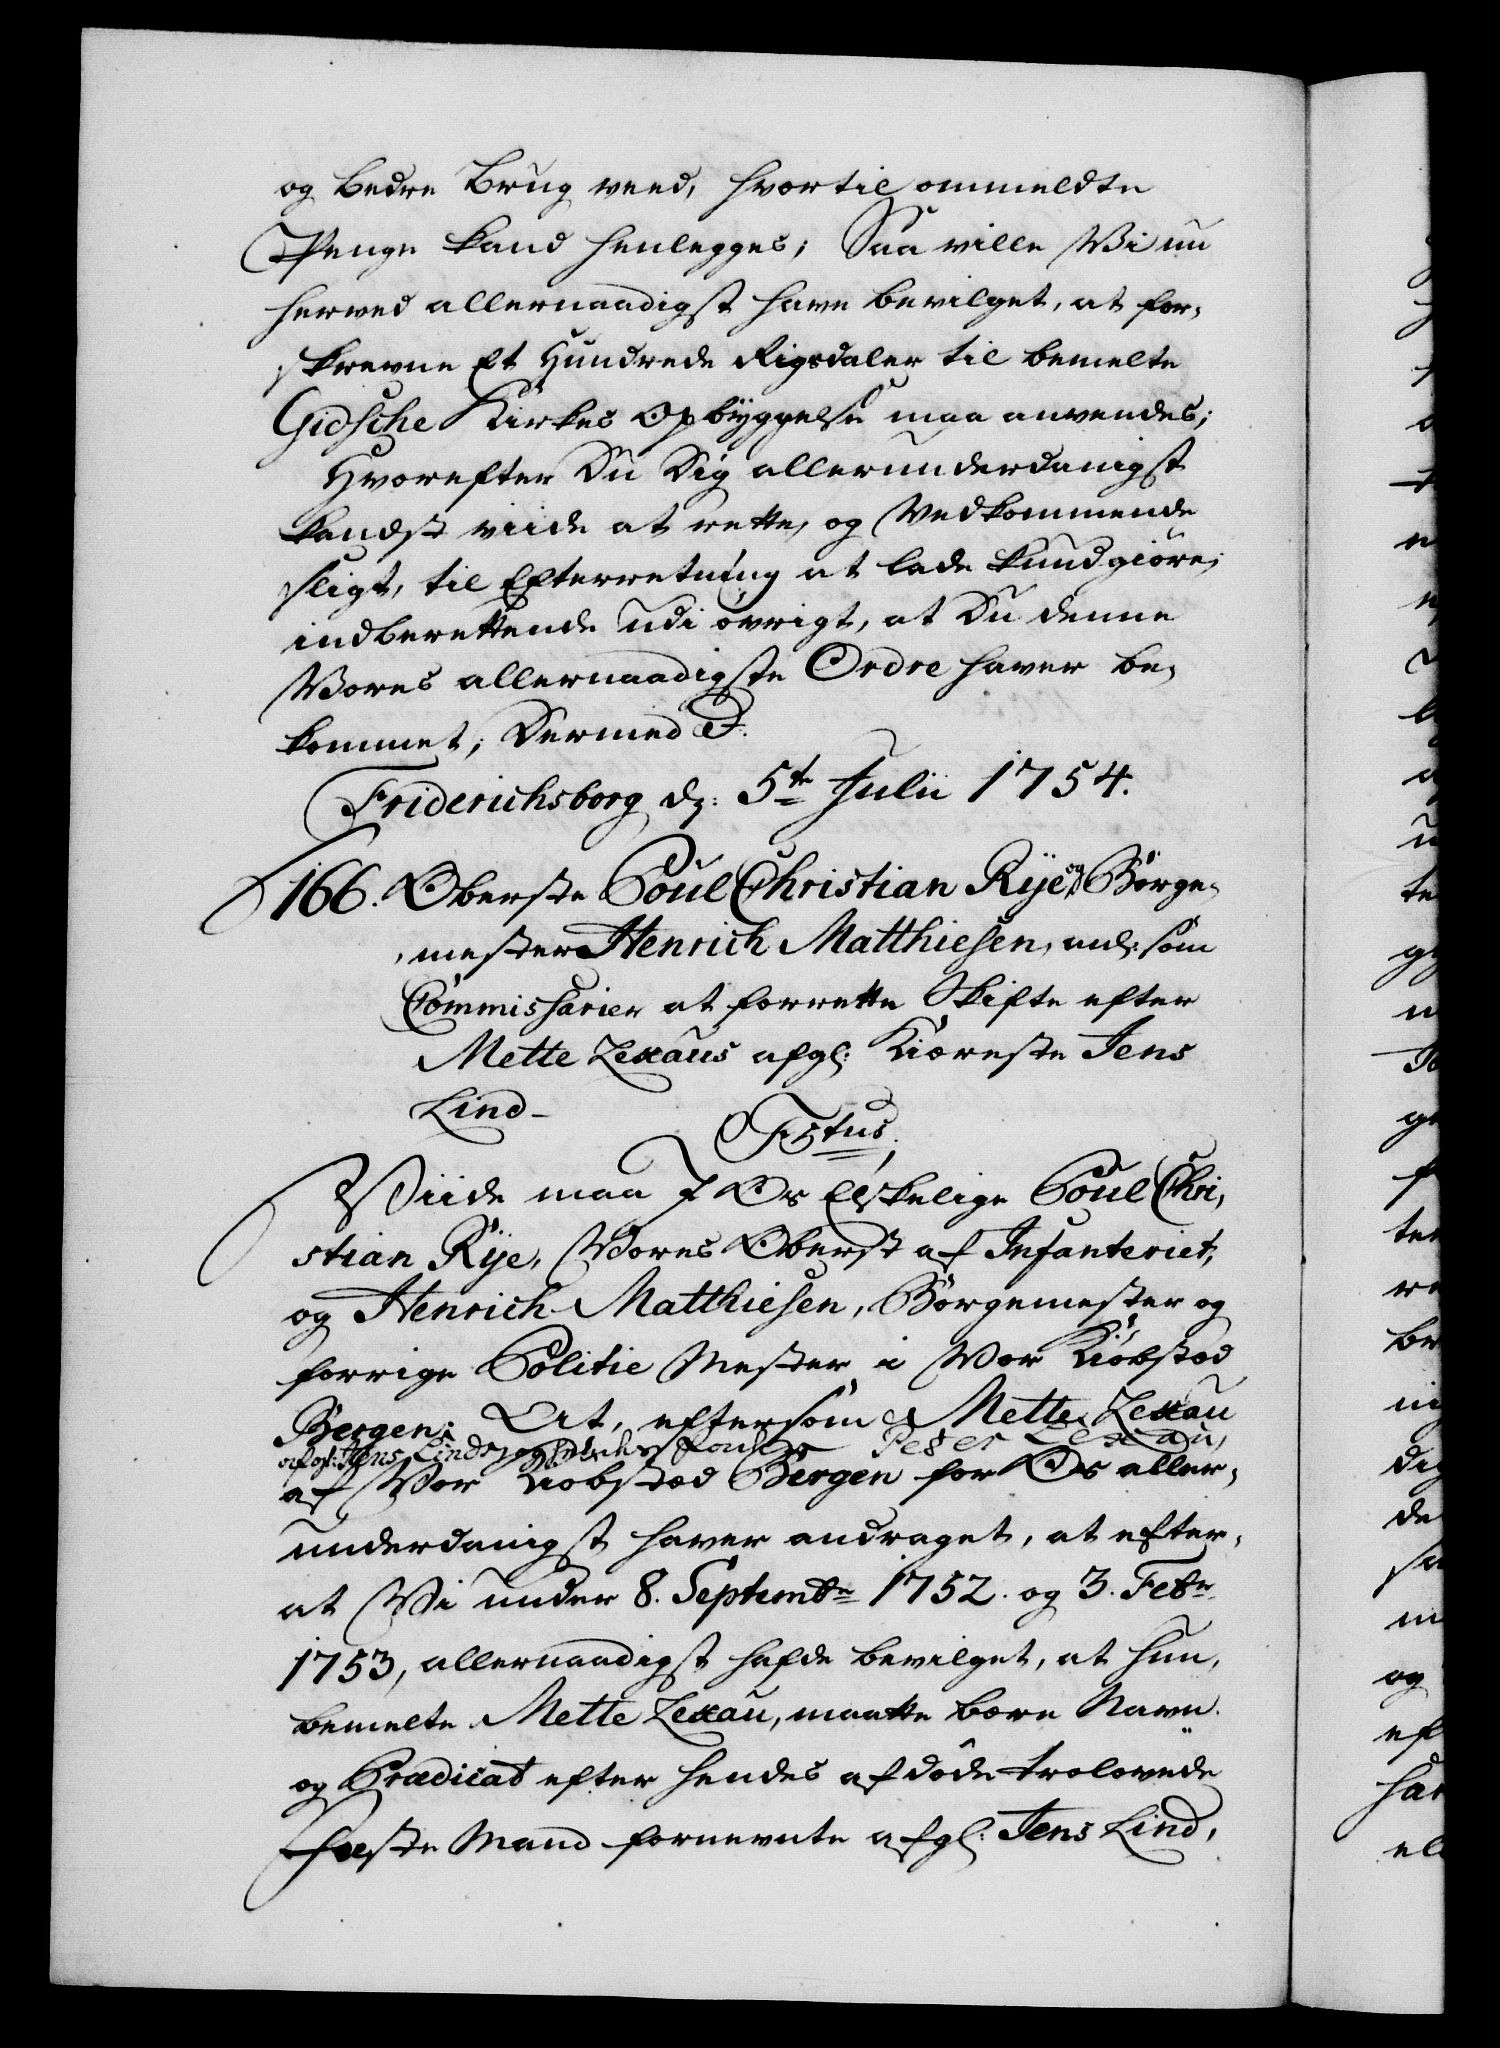 og bedre brug veed, hvortil ommeldte
Penge kand henlegges; Saa ville Vi nu
herved allernaadigst have bevilget, at for,
skrevne Et Hundrede Rigsdaler til bemelte
Gidsche Kirkes Opbÿggelse maa anvendes;
Hvorefter Du Dig allerunderdanigst
kandst viide at rette, og Vedkommende
sligt, til Efterretning at lade kundgiøre;
indberettende udi øvrigt, at Du denne
Vores allernaadigste Ordre haver be,
kommet; Dermed &.
Friderichsborg d: 5te Julii 1754.
166. Oberste Poul Christian Rÿe og Borge,
mester Henrich Matthiesen, anl: som
Commissarier at forrette Skifte efter
Mette Lexaus afgl: Kiæreste Jens
Lind-
F5tus,
Viide maa I Os Elskelige Poul Chri,
stian Rÿe, Vores Oberst af Infanteriet,
og Henrich Matthiesen, Borgemester og
forrige Politie Mester i Vor Kiøbstæd
Bergen; At, eftersom Mette Lexau
afgl: Jens Linds og hendes Fader Peder Lexau,
af Vor Kiobstæd Bergen for Os aller,
underdanigst haver andraget, at efter,
at Vi under 8. Septembr 1752. og 3. Febr
1753, allernaadigst hafde bevilget, at hun,
bemelte Mette Lexau, maatte bære Navn
og Prædicat efter hendes afdøde trolovede
Fæste Mand fornevnte afgl: Jens Lind,